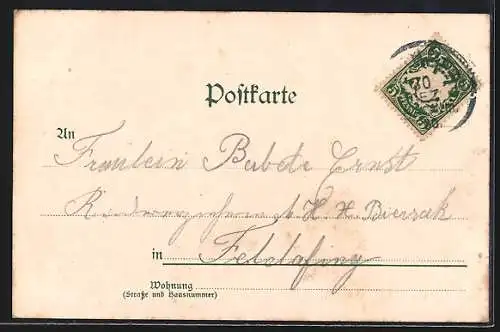 Postkarte
An
Fräulein Babete Ernst
H H Biersak
in Feldafing
Wohnung
(Straße und Hausnummer)